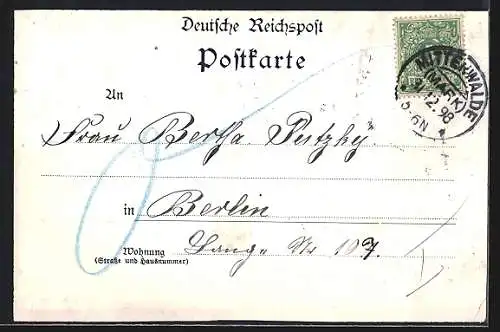 Deutsche Reichspost
Postkarte
MITTENWALDE
(MARK)
12.98
5-6N
An
Frau Bertha
in Berlin
Wohnung Lang- Nr 107.
(Straße und Hausnummer)